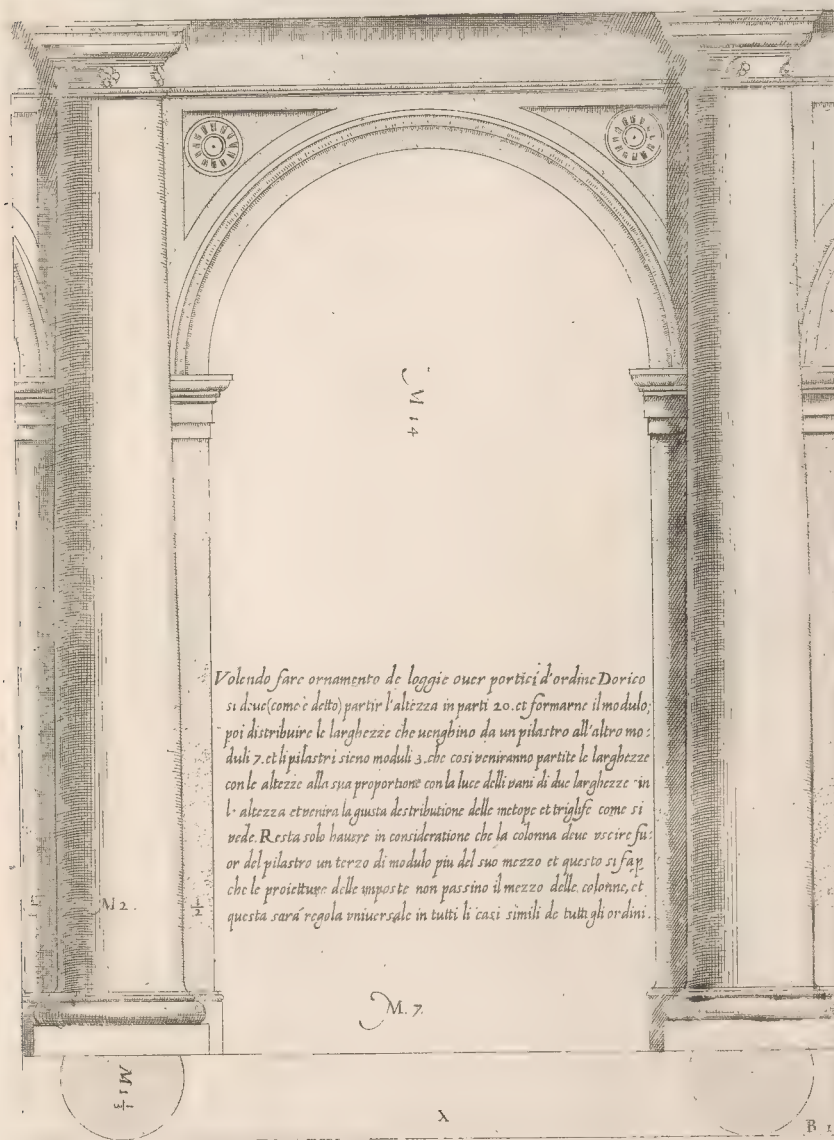 M 14
Volendo fare ornamento de loggie ouer portici d'ordine Dorico
si deue (come è detto) partir l'altezza in parti 20. et formarne il modulo;
poi distribuire le larghezze che uenghino da un pilastro all'altro mo:
duli 7. et li pilastri sieno moduli 3. che cosi veniranno partite le larghezze
con le altezze alla sua proportione con la luce delli vani di due larghezze in
l'altezza et venira la giusta destributione delle metope et triglife come si
vede. Resta solo hauere in consideratione che la colonna deue vscire fu:
or del pilastro un terzo di modulo piu del suo mezzo et questo si fa p
che le proietture delle imposte non passino il mezzo delle colonne, et
questa sará regola vniuersale in tutti li casi simili de tutti gli ordini.
M 2. 1/2
M. 7.
M 1 1/3
X
B 1